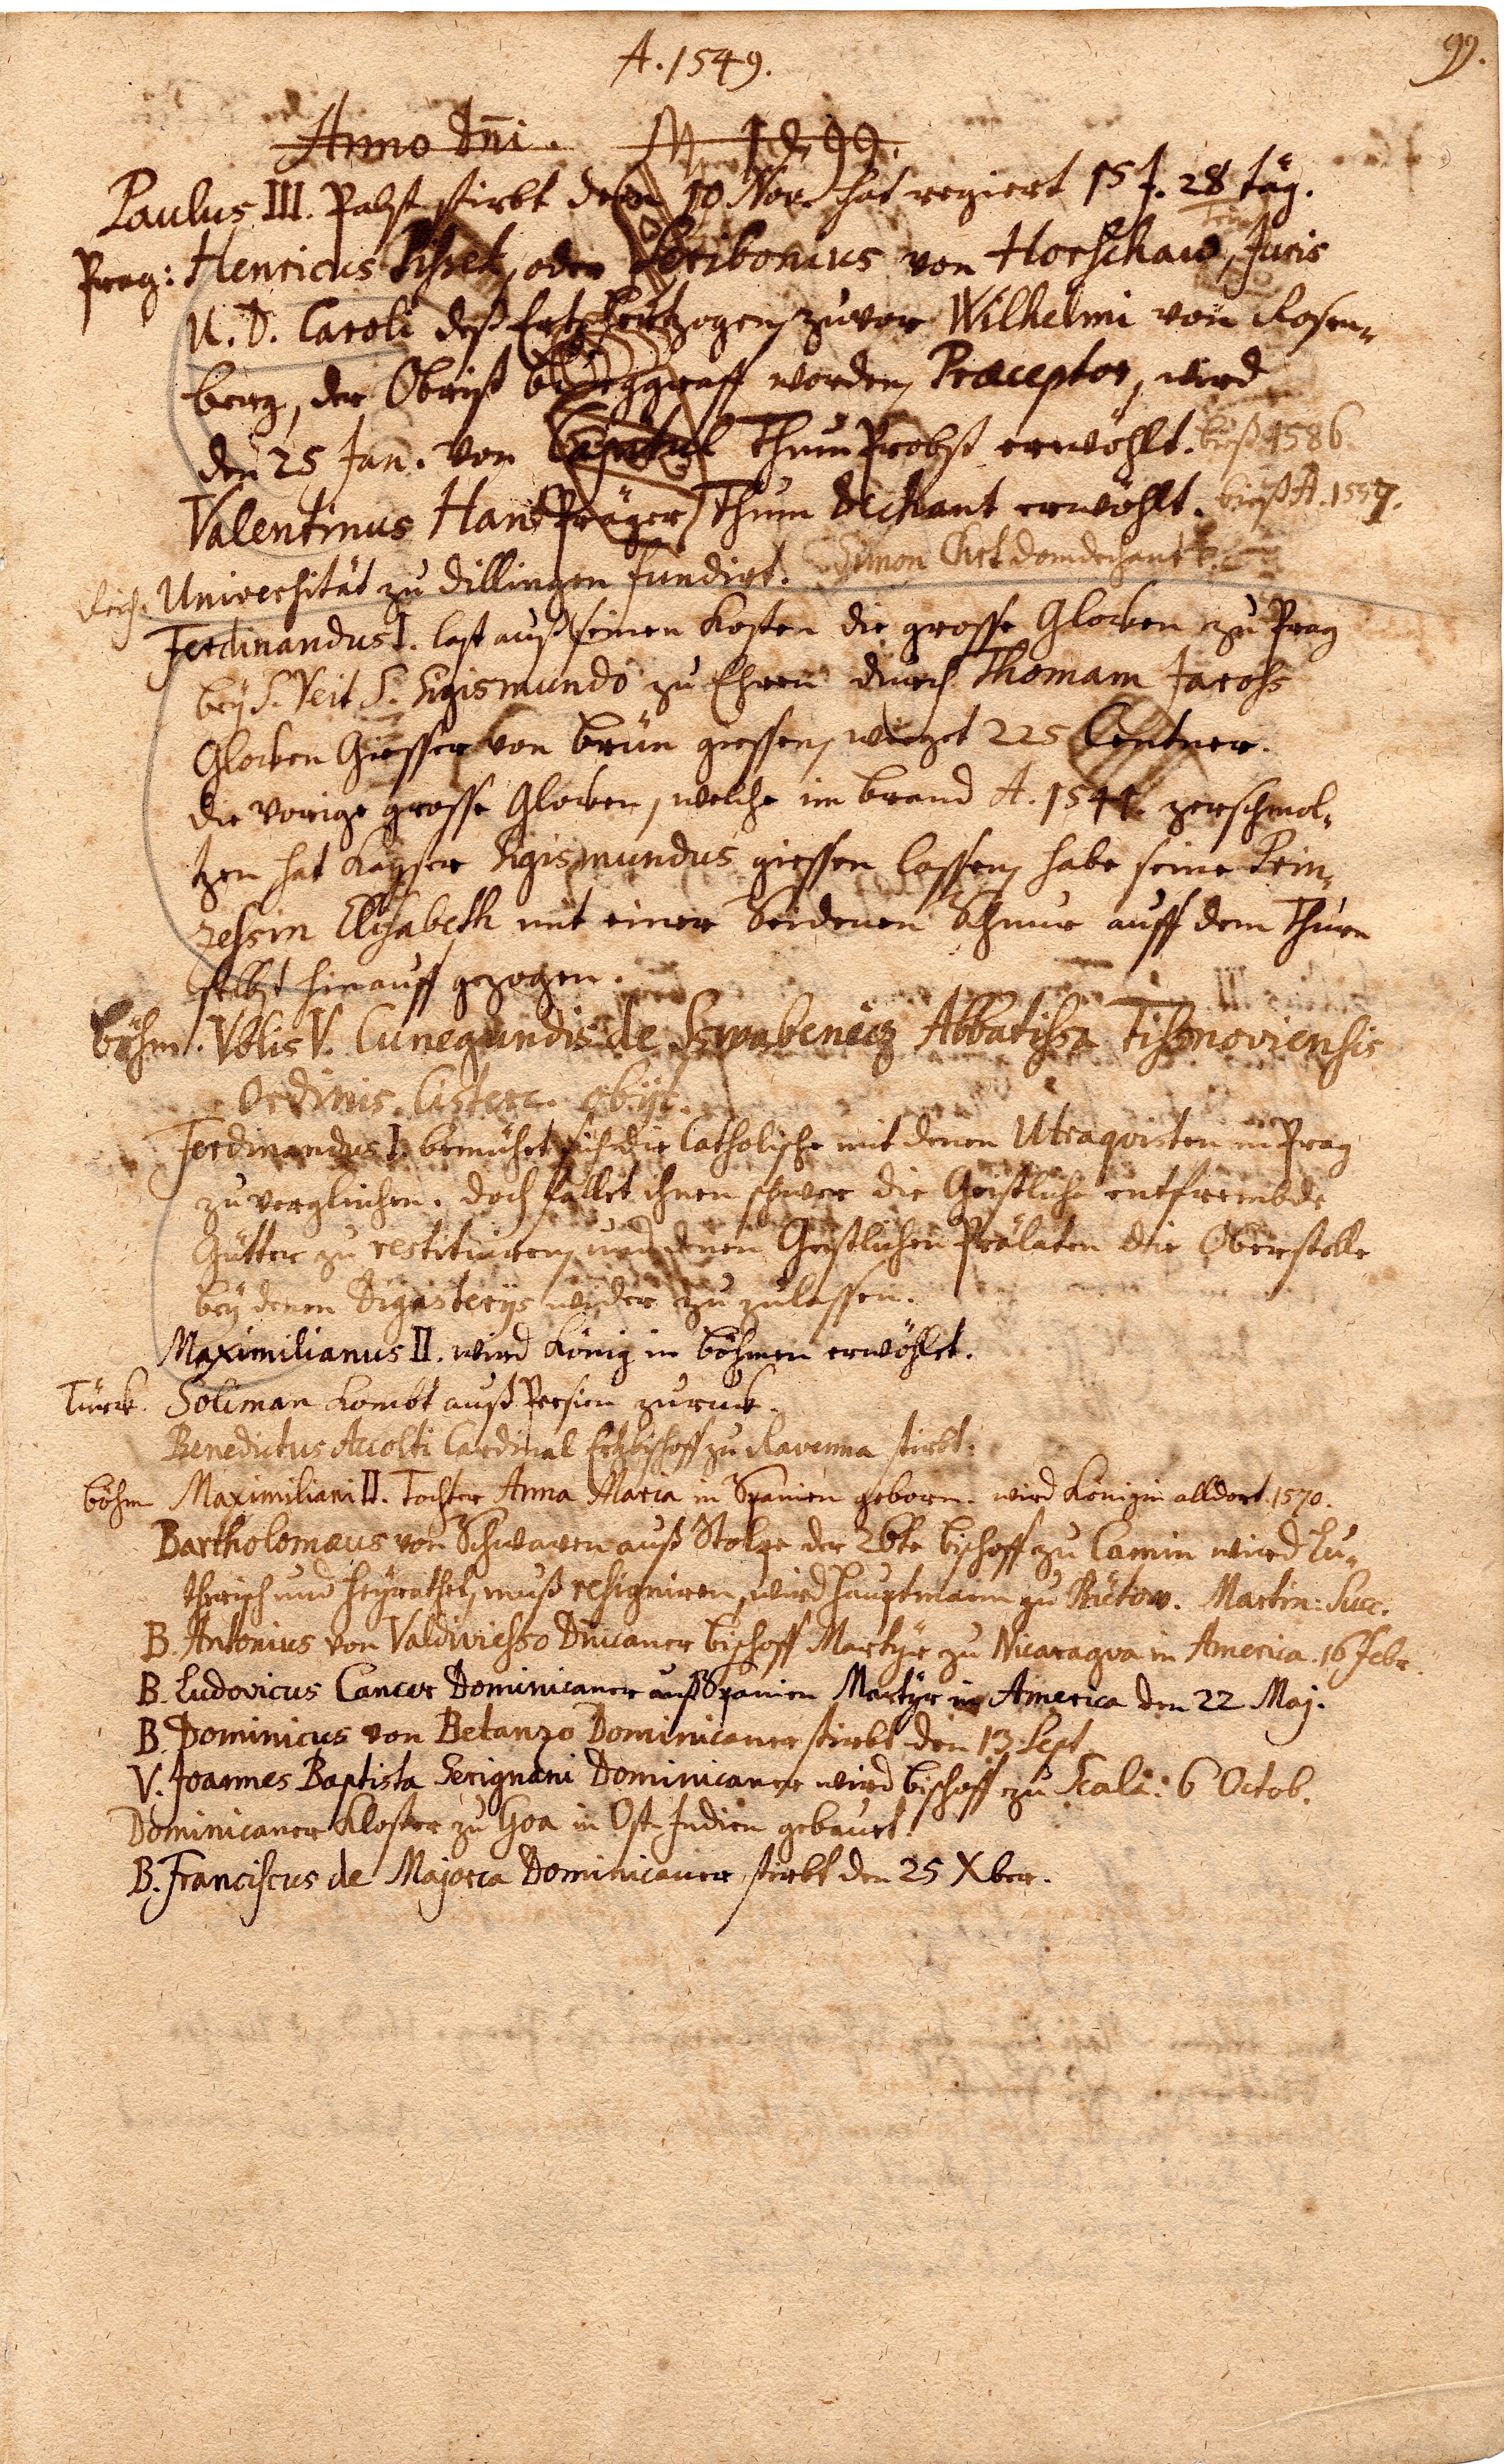 A. 1549.
99.
Anno Dñi.
Paulus III. Pabst stirbt den 10 Nov. hat regiert 15 J. 28 täg.
Prag: Henricus Pisek, oder Scribonius von Horschaw, Juris
U. D. Caroli deß Ertzhertzogen, zuvor Wilhelmi von Rosen-
berg, der Obrist burggraff worden, Præceptor, wird
den 25 Jan. von Capitul Thum Probst erwöhlt. bieß 1586.
Valentinus Han Prager Thum Dechant erwöhlt. bieß A. 1557.
Reich. Universität zu Dillingen fundirt. Simon domdechant
Ferdinandus I. last auß seinen Kosten die grosse Glocken zu Prag
bey S. Veit S. Sigismundo zu Ehren durch Thomam Jarohs
Glocken Giesser von Brün giessen, wieget 225 Centner.
die vorige grosse Glocken, welche im brand A. 1541. zerschmol-
tzen hat Kayser Sigismundus giessen lassen, habe seine Prin-
zessin Elisabeth mit einer Seidenen Schnur auff dem Thurn
selbst hinauff gezogen.
böhm. Vblis V. Cunegundis de Sswabeniez Abbatissa Tissnoviensis
Ordinis. Cisterc. obijt.
Ferdinandus I. bemühet sich die Catholische mit denen Utraquisten in Prag
zu vergleichen. doch fallet ihnen schwer die Geistliche entfrembde
Gütter zu restituiren, und denen Geistlichen Prälaten die Oberstelle
bey denen Digasterijs wider zu zulassen.
Maximilianus II. wird König in böhmen erwöhlet.
Türck. Soliman kombt auß Persien zuruck.
Benedictus Accolti Cardinal Ertzbischoff zu Ravenna stirbt.
böhm Maximiliani II. Tochter Anna Maria in Spanien geborn. wird Königin alldort 1570.
Bartholomæus von Schwaven auß Stolpe der 26te bischoff zu Camin wird Lu-
therisch und heyrathet, muß resigniren, wird Hauptmann zu Bütow. Martin: Succ.
B. Antonius von Valdiviesso Dnicaner bischoff Martyr zu Nicaragva in America. 16 Febr.
B. Ludovicus Cancer Dominicaner auß Spanien Martyr in America den 22 Maj.
B. Dominicus von Betanzo Dominicaner stirbt den 13. Sept.
V. Joannes Baptista Serignani Dominicaner wird bischoff zu Scala: 6 Octob.
Dominicaner Kloster zu Goa in Ost-Indien gebauet.
B. Franciscus de Majorca Dominicaner stirbt den 25 Xber.